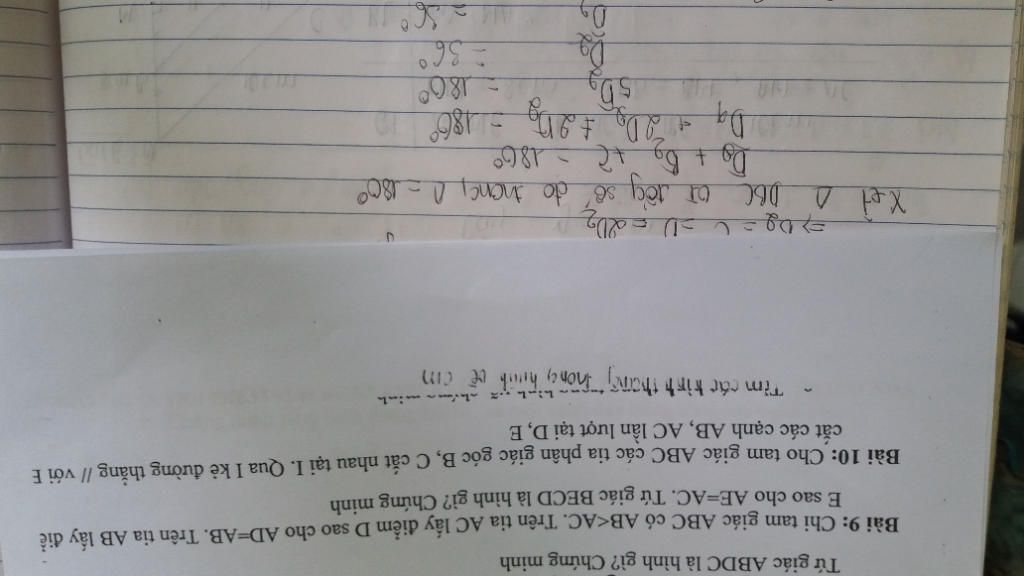 Tứ giác ABDC là hình gì? Chứng minh
Bài 9: Chi tam giác ABC có AB<AC. Trên tia AC lấy điểm D sao cho AD=AB. Trên tia AB lấy điể
E sao cho AE=AC. Tứ giác BECD là hình gì? Chứng minh
Bài 10: Cho tam giác ABC các tia phân giác góc B, C cắt nhau tại I. Qua I kẻ đường thẳng // với E
cắt các cạnh AB, AC lần lượt tại D, E
Tìm các hình thang trong hình vẽ
Xét Δ DBC có tổng số đo trong Δ = 180°
D₂ + B₂ + C = 180°
D₂ + 2D₂ + 2D₂ = 180°
5D₂ = 180°
D₂ = 36°
D₂ = 36°